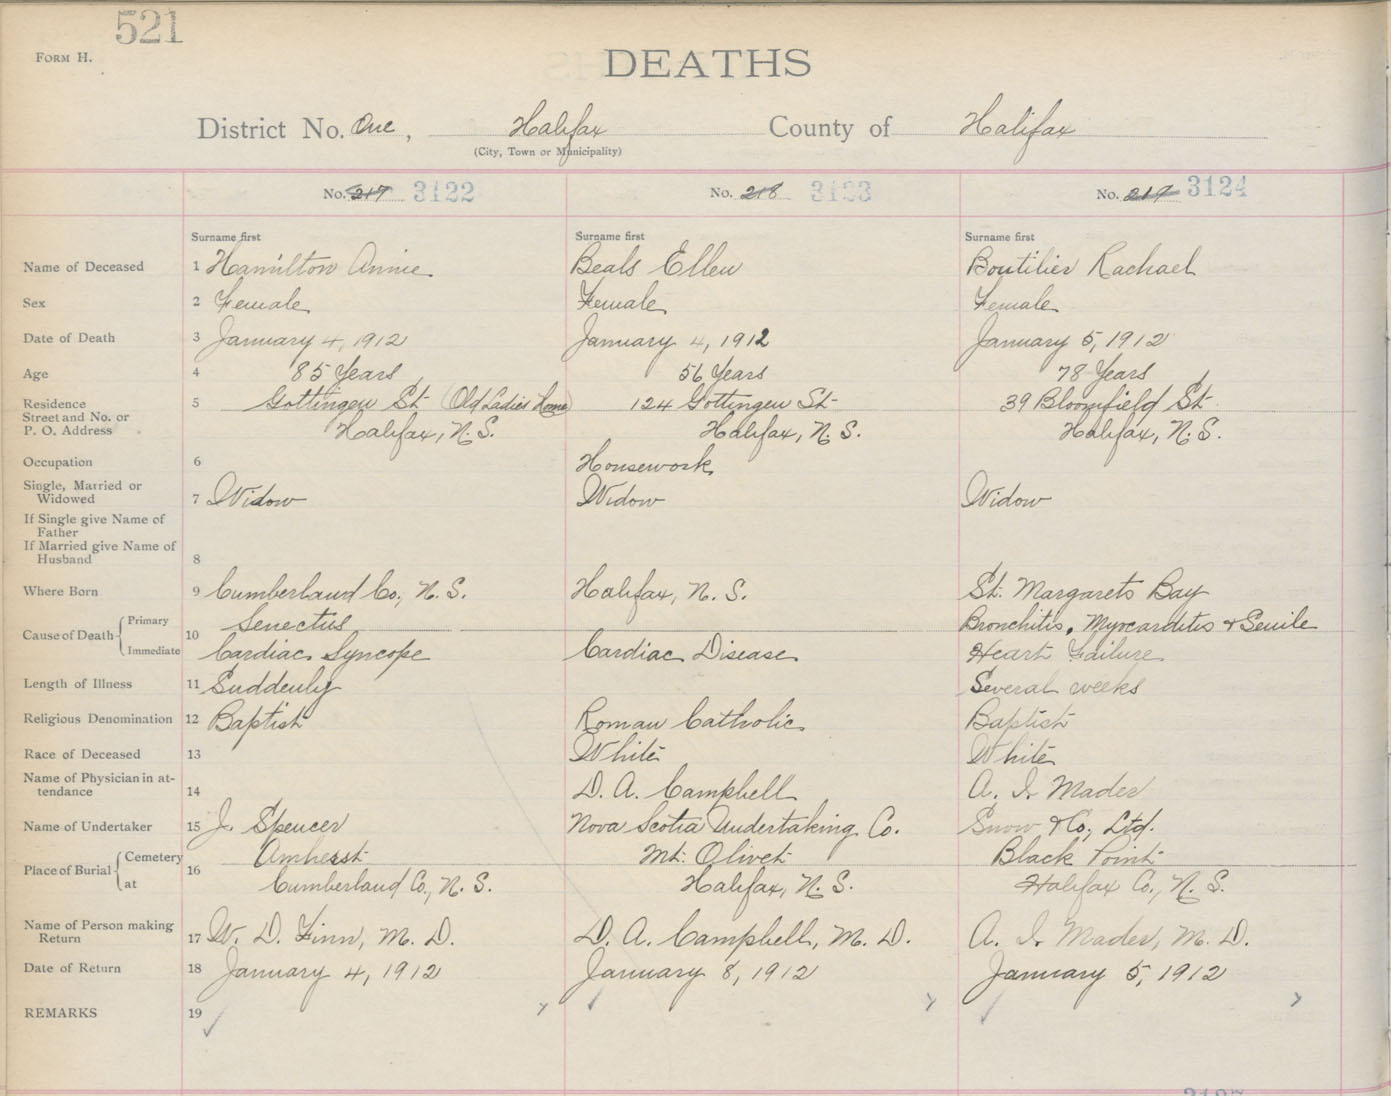 521
FORM H.
DEATHS
District No. One, Halifax County of Halifax
(City, Town or Municipality)
No. 217 3122 No. 218 3123 No. 219 3124
Surname first Surname first Surname first
Name of Deceased 1 Hamilton Annie Beals Ellen Boutilier Rachael
Sex 2 Female Female Female
Date of Death 3 January 4, 1912 January 4, 1912 January 5, 1912
Age 4 85 Years 56 Years 78 Years
Residence 5 Gottingen St (Old Ladies Home) 124 Gottingen St 39 Bloomfield St.
Street and No. or
P. O. Address Halifax, N.S. Halifax, N.S. Halifax, N.S.
Occupation 6 Housework
Single, Married or
Widowed 7 Widow Widow Widow
If Single give Name of
Father
If Married give Name of
Husband 8
Where Born 9 Cumberland Co., N.S. Halifax, N.S. St. Margarets Bay
Cause of Death Primary 10 Senectus Bronchitis, Myocarditis & Senile
Immediate Cardiac Syncope Cardiac Disease Heart Failure
Length of Illness 11 Suddenly Several weeks
Religious Denomination 12 Baptist Roman Catholic Baptist
Race of Deceased 13 White White
Name of Physician in at-
tendance 14 D. A. Campbell A. I. Mader
Name of Undertaker 15 J. Spencer Nova Scotia Undertaking Co. Snow & Co., Ltd.
Place of Burial Cemetery 16 Amherst Mt. Olivet Black Point
at Cumberland Co., N.S. Halifax, N.S. Halifax Co., N.S.
Name of Person making
Return 17 W. D. Finn, M. D. D. A. Campbell, M. D. A. I. Mader, M. D.
Date of Return 18 January 4, 1912 January 8, 1912 January 5, 1912
REMARKS 19